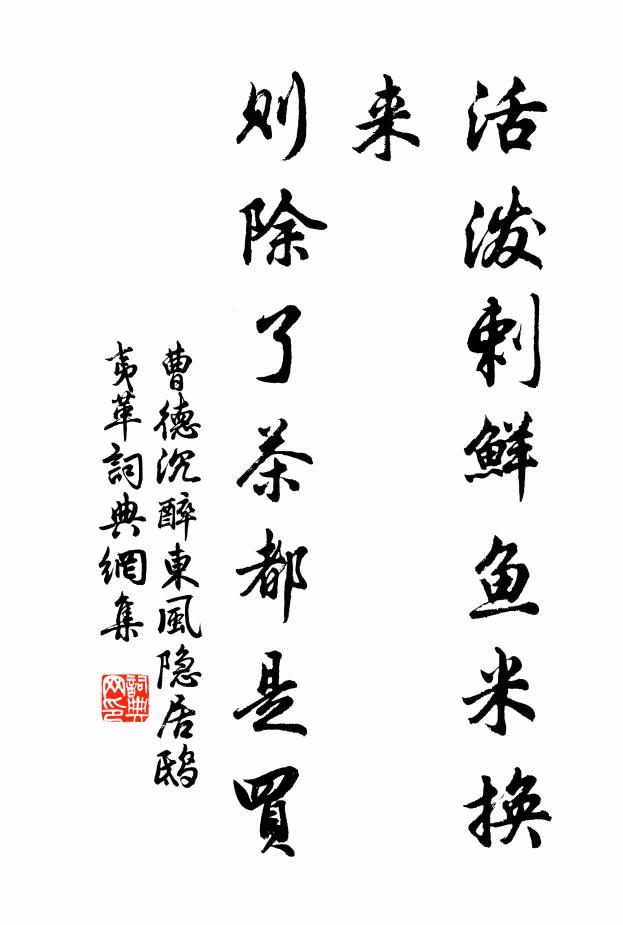 活泼剌鲜鱼米换
来
则除了茶都是買
曹德沉醉東風隐居鸱
夷革詞典網集
詞典
网印